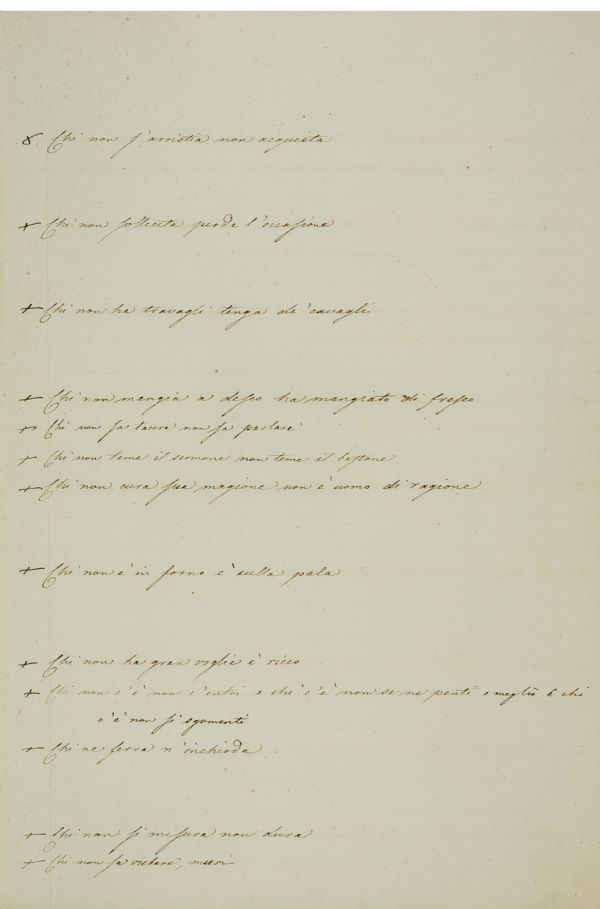 8. Chi non s'arristia non acquista
+ Chi non sollecita perde l'occasione
+ Chi non ha travagli tenga de' cavagli
+ Chi non mangia a desco ha mangiato di fresco
+ Chi non sa tacere non sa parlare
+ Chi non teme il sermone non teme il bastone
+ Chi non cura sua magione non è uomo di ragione
+ Chi non è in forno è sulla pala
+ Chi non ha gran voglie è ricco
+ Chi non c'è non c'entri e chi c'è non se ne penti o meglio e chi
c'è non si sgomenti
+ Chi ne ferra n'inchioda
+ Chi non si misura non dura
+ Chi non sa rubare, muri